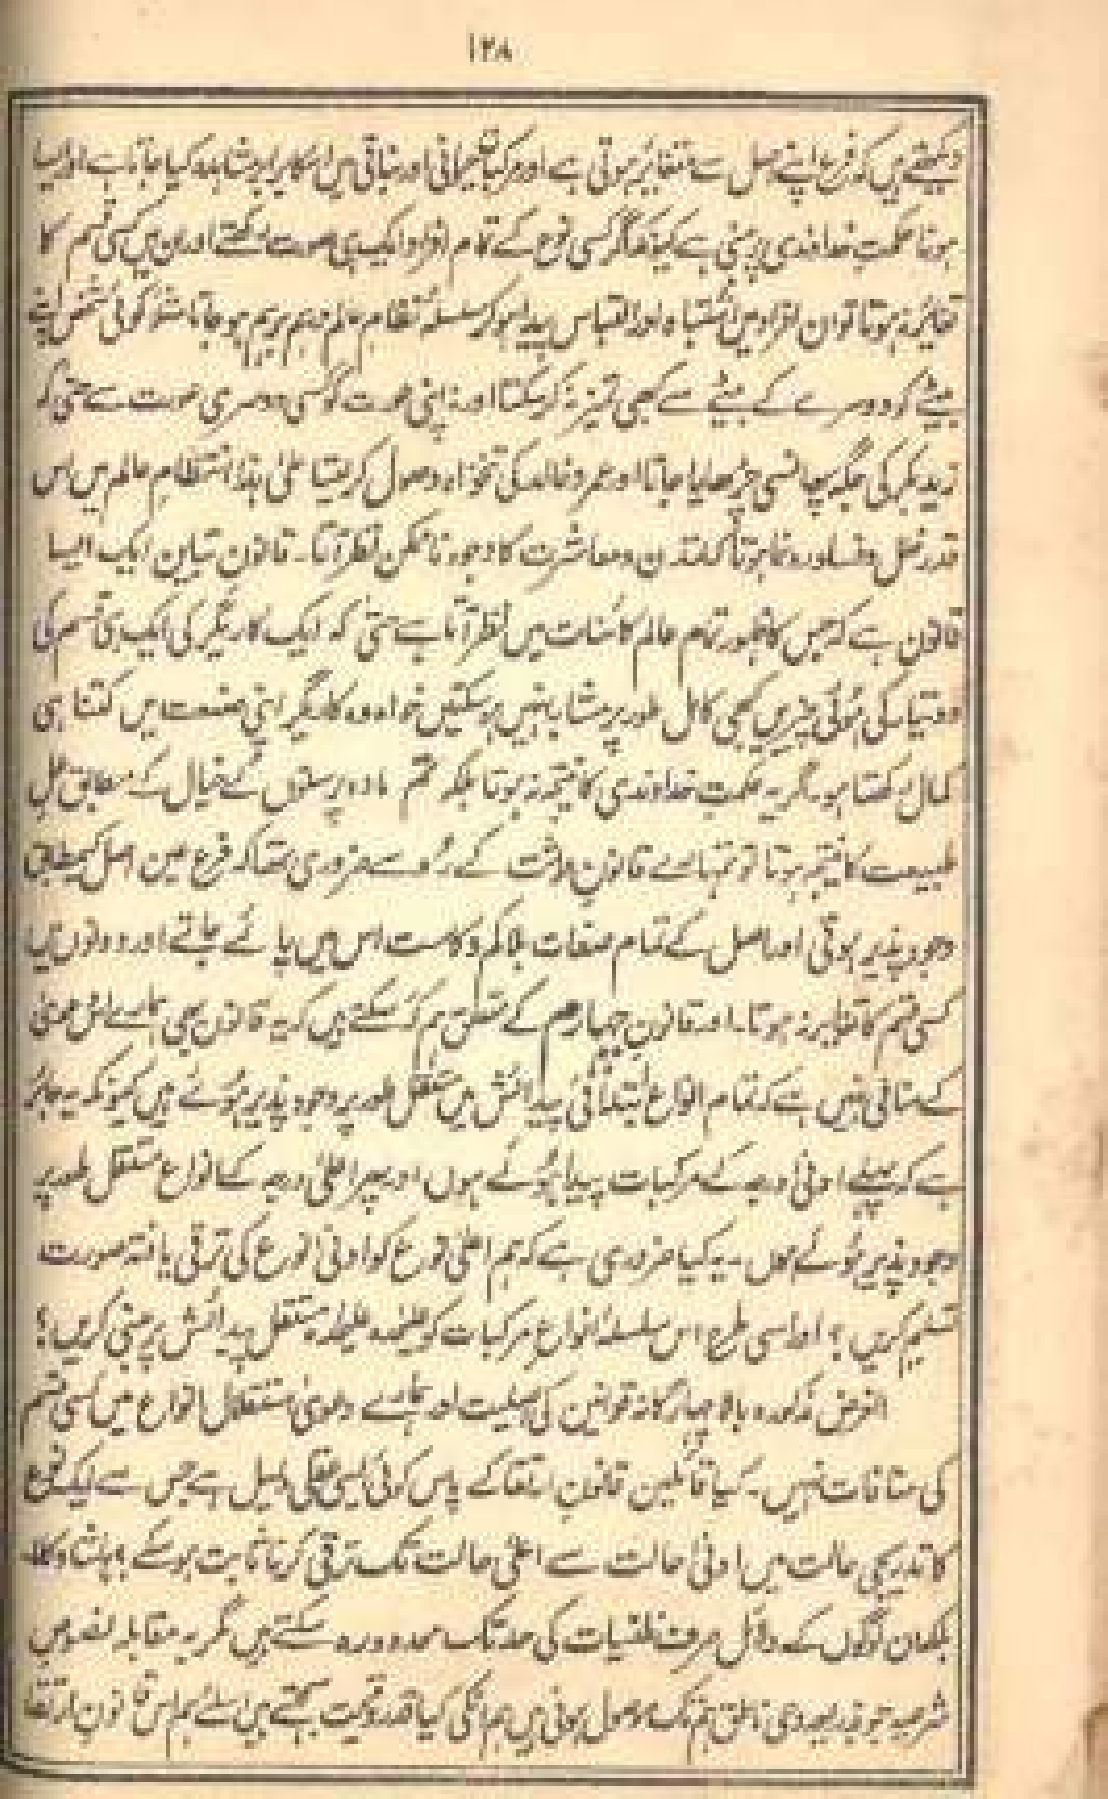 ۱۲۸
دیکھتے ہیں کہ فرع اپنے اصل سے متغائر ہوتی ہے اور مرکبات حیوانی اور نباتی میں اسکا برابر مشاہدہ کیا جاتا ہے اور ایسا
ہونا حکمتِ خداوندی پر مبنی ہے کیونکہ اگر کسی نوع کے تمام افراد ایک ہی صورت رکھتے اور ان میں کسی قسم کا
تغائر نہ ہوتا تو ان افراد میں اشتباہ اور التباس پیدا ہو کر سلسلۂ نظامِ عالم درہم برہم ہو جاتا مثلاً کوئی شخص اپنے
بیٹے کو دوسرے کے بیٹے سے کبھی تمیز نہ کر سکتا اور نہ اپنی عورت کو کسی دوسری عورت سے حتیٰ کہ
زید بکر کی جگہ پھانسی چڑھایا جاتا اور عمرو خالد کی تنخواہ وصول کر لیتا علیٰ ہذا انتظامِ عالم میں اس
قدر خلل و فساد رونما ہوتا کہ تمدن و معاشرت کا وجود ناممکن نظر آتا۔ قانونِ تباین ایک ایسا
قانون ہے کہ جس کا ظہور تمام عالم کائنات میں نظر آتا ہے حتیٰ کہ ایک کاریگر کی ایک ہی قسم کی
دو تیار کی ہوئی چیزیں بھی کامل طور پر مشابہ نہیں ہو سکتیں خواہ وہ کاریگر اپنی صنعت میں کتنا ہی
کمال رکھتا ہو۔ اگر یہ حکمتِ خداوندی کا نتیجہ نہ ہوتا بلکہ تم مادہ پرستوں کے خیال کے مطابق
طبیعت کا نتیجہ ہوتا تو تمہارے قانونِ وراثت کے رُو سے ضروری تھا کہ فرع عین اصل کے مطابق
وجود پذیر ہوتی اور اصل کے تمام صفات بلا کم و کاست اس میں پائے جاتے اور دونوں میں
کسی قسم کا تغایر نہ ہوتا۔ اور قانونِ چہارم کے متعلق ہم کہہ سکتے ہیں کہ یہ قانون بھی ہمارے اس دعویٰ
کے منافی نہیں ہے کہ تمام انواع ابتدائی پیدائش میں مستقل طور پر وجود پذیر ہوئے ہیں کیونکہ یہ جائز
ہے کہ پہلے ادنیٰ درجہ کے مرکبات پیدا ہوئے ہوں اور پھر اعلیٰ درجہ کے انواع مستقل طور پر
وجود پذیر ہوئے ہوں۔ یہ کیا ضروری ہے کہ ہم اعلیٰ نوع کو ادنیٰ نوع کی ترقی یافتہ صورت
تسلیم کریں؟ اور اسی طرح اس سلسلۂ انواعِ مرکبات کو علیٰحدہ علیٰحدہ مستقل پیدائش پر مبنی کریں؟
الغرض مذکورہ بالا چہارگانہ قوانین کی اصلیت اور ہمارے دعویٰ استقلالِ انواع میں کسی قسم
کی منافات نہیں۔ کیا قائلین قانونِ ارتقا کے پاس کوئی ایسی عقلی دلیل ہے جس سے ایک نوع
کا تدریجی حالت میں ادنیٰ حالت سے اعلیٰ حالت تک ترقی کرنا ثابت ہو سکے؟ حاشا و کلا
بلکہ ان لوگوں کے دلائل صرف ظنیات کی حد تک محدود رہ سکتے ہیں مگر بہ مقابلہ نصوص
شرعیہ جو بذریعہ وحی ناطق ہم تک موصول ہوئی ہیں ہم انکی کیا قدر و قیمت سمجھتے ہیں اسلئے ہم اس قانونِ ارتقا